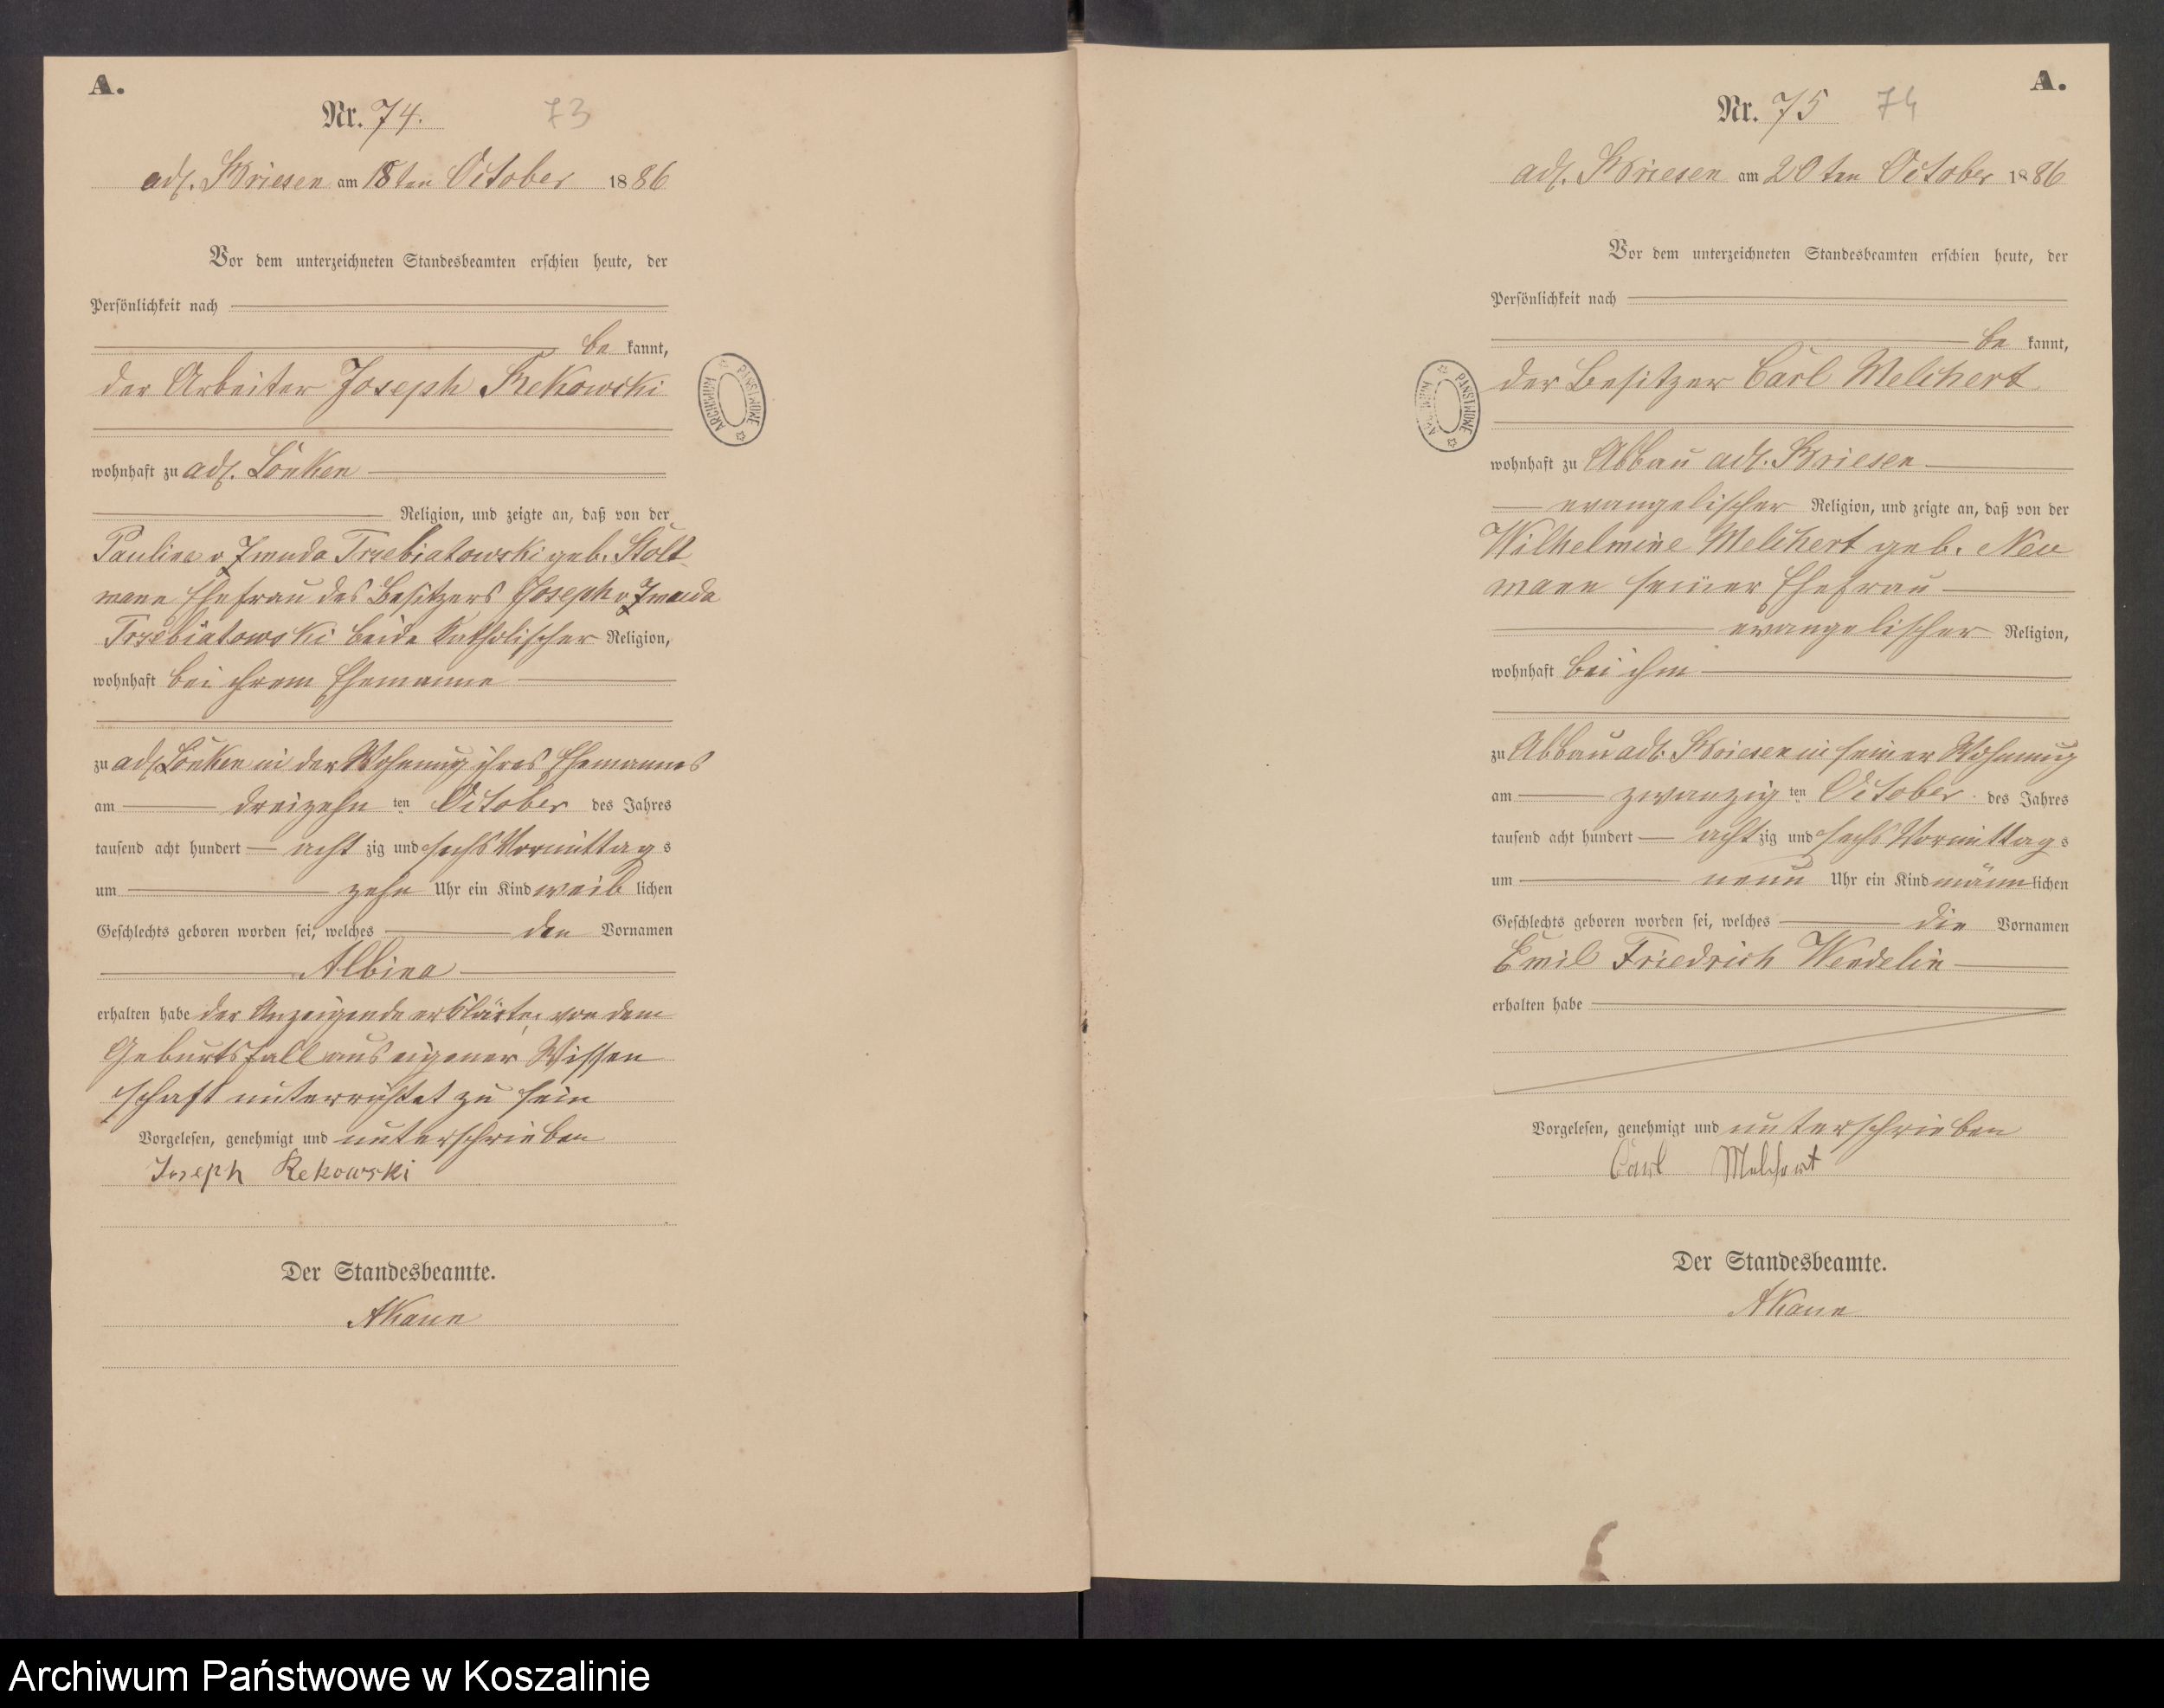 A.
Nr. 74.
73
adl. Briesen am 18ten October 1886
Vor dem unterzeichneten Standesbeamten erschien heute, der
Persönlichkeit nach
be kannt,
der Arbeiter Joseph Rekowski
wohnhaft zu adl. Lonken
Religion, und zeigte an, daß von der
Pauline v Zmuda Trzebiatowski geb. Stolt
mann Ehefrau des Besitzers Joseph v Zmuda
Trzebiatowski beide katholischer Religion,
wohnhaft bei ihrem Ehemanne
zu adl Lonken in der Wohnung ihres Ehemannes
am dreizehn ten October des Jahres
tausend acht hundert acht zig und sechs Vormittag s
um zehn Uhr ein Kind weib lichen
Geschlechts geboren worden sei, welches den Vornamen
Albina
erhalten habe der Anzeigende erklärte, von dem
Geburtsfall aus eigener Wissen
schaft unterrichtet zu sein
Vorgelesen, genehmigt und unterschrieben
Joseph Rekowski
Der Standesbeamte.
ARCHIWUM PAŃSTWOWE
A.
Nr. 75
74
adl. Briesen am 20ten October 1886
Vor dem unterzeichneten Standesbeamten erschien heute, der
Persönlichkeit nach
be kannt,
der Besitzer Carl Melchert
wohnhaft zu Abbau adl. Briesen
evangelischer Religion, und zeigte an, daß von der
Wilhelmine Melchert geb. Neu
mann seiner Ehefrau
evangelischer Religion,
wohnhaft bei ihm
zu Abbau adl. Briesen in seiner Wohnung
am zwanzig ten October des Jahres
tausend acht hundert acht zig und sechs Vormittag s
um neun Uhr ein Kind männ lichen
Geschlechts geboren worden sei, welches die Vornamen
Emil Friedrich Wendelin
erhalten habe
Vorgelesen, genehmigt und unterschrieben
Carl Melchert
Der Standesbeamte.
ARCHIWUM PAŃSTWOWE
Archiwum Państwowe w Koszalinie